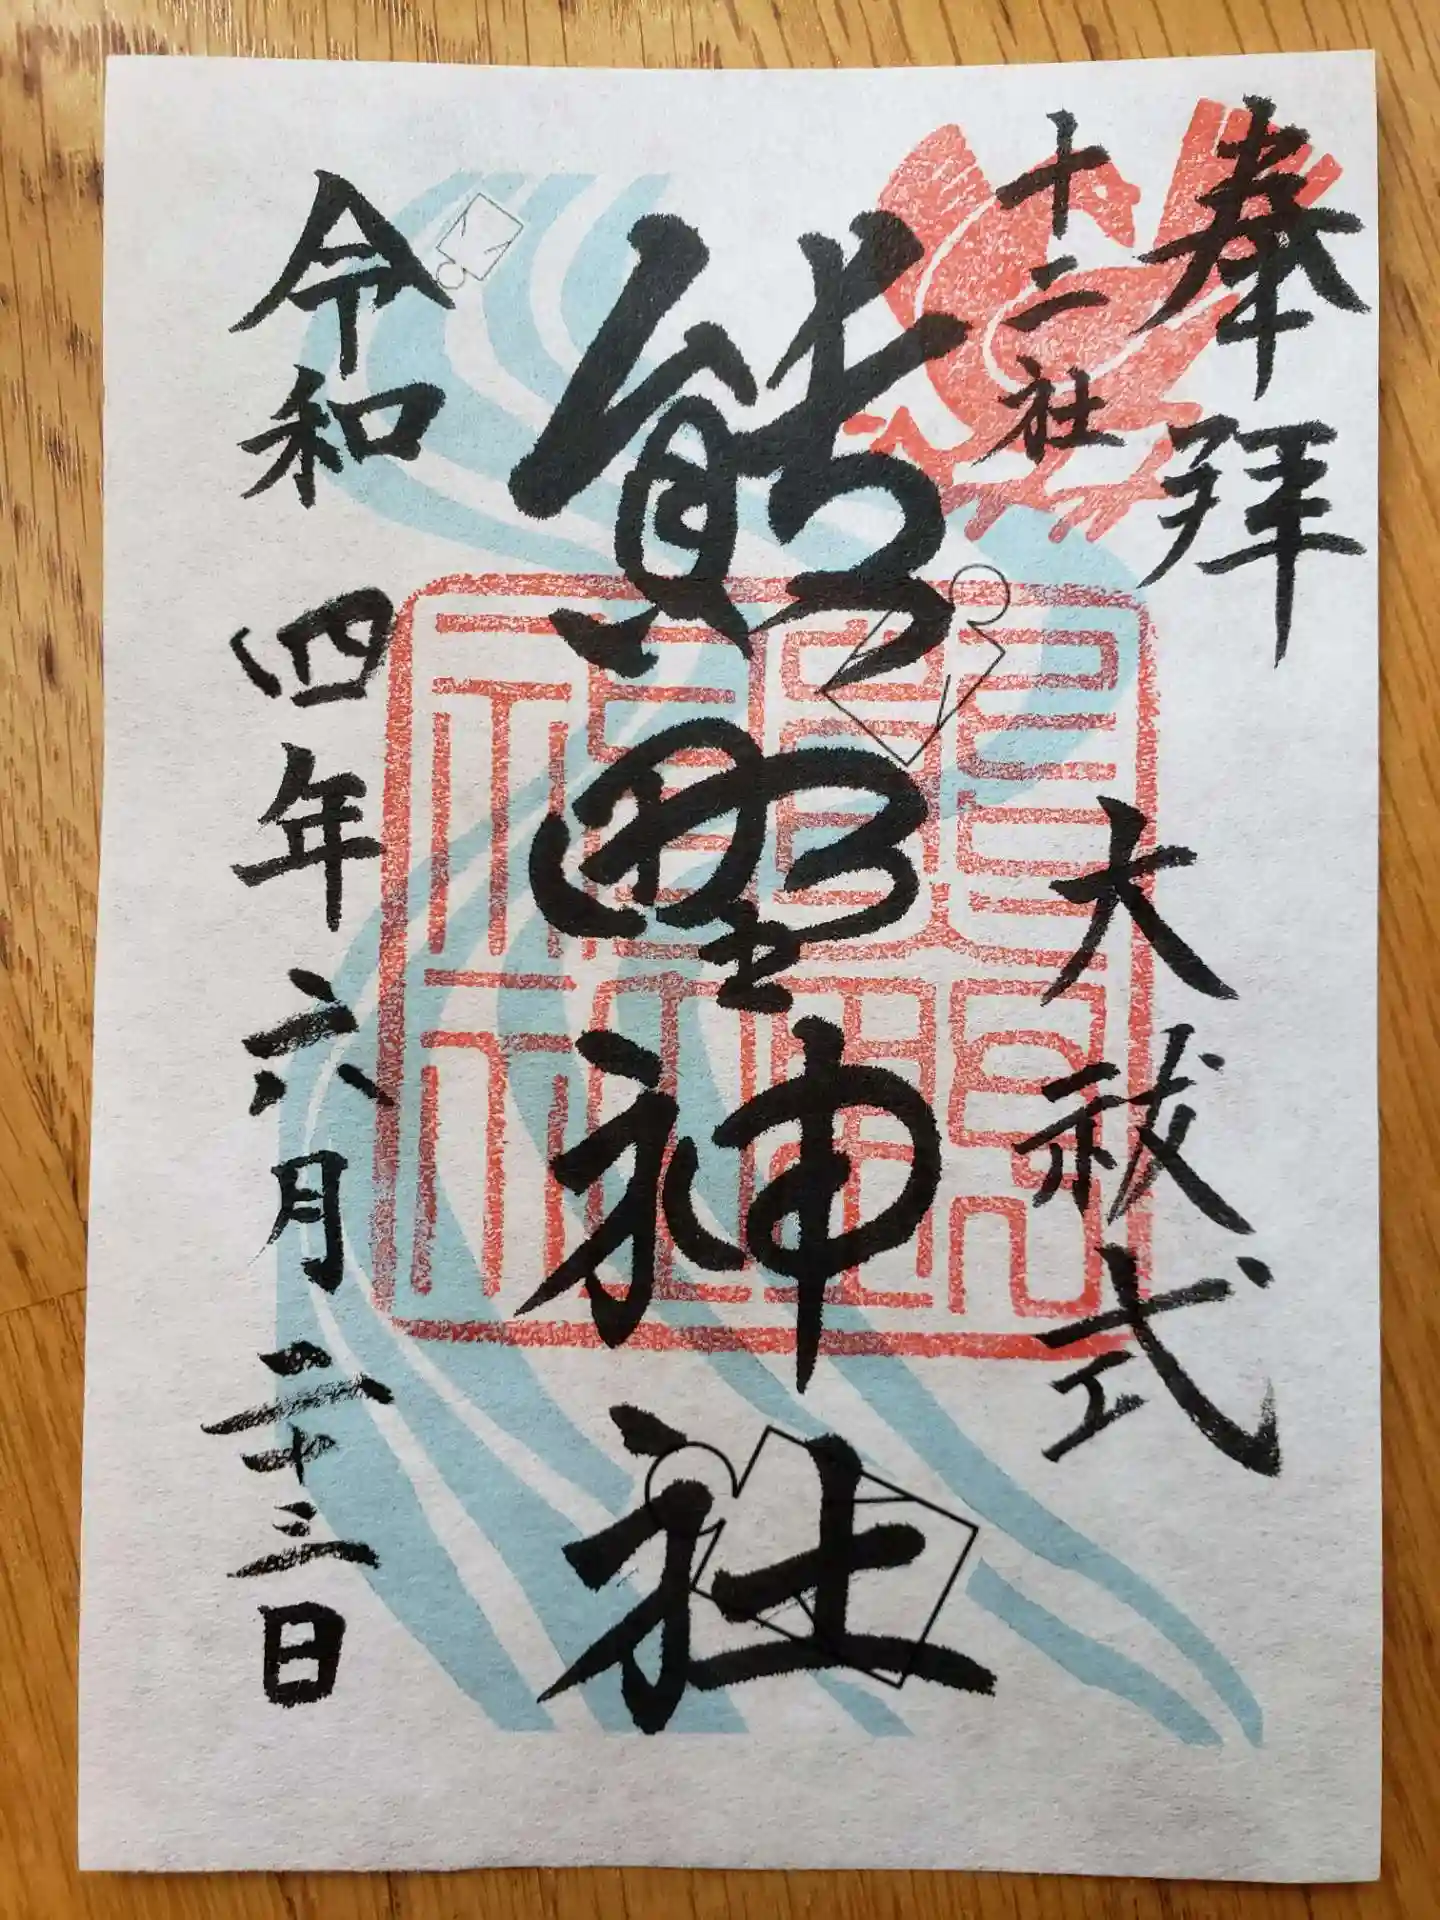 奉拝
十二社
大祓式
熊野神社
令和四年六月二十三日